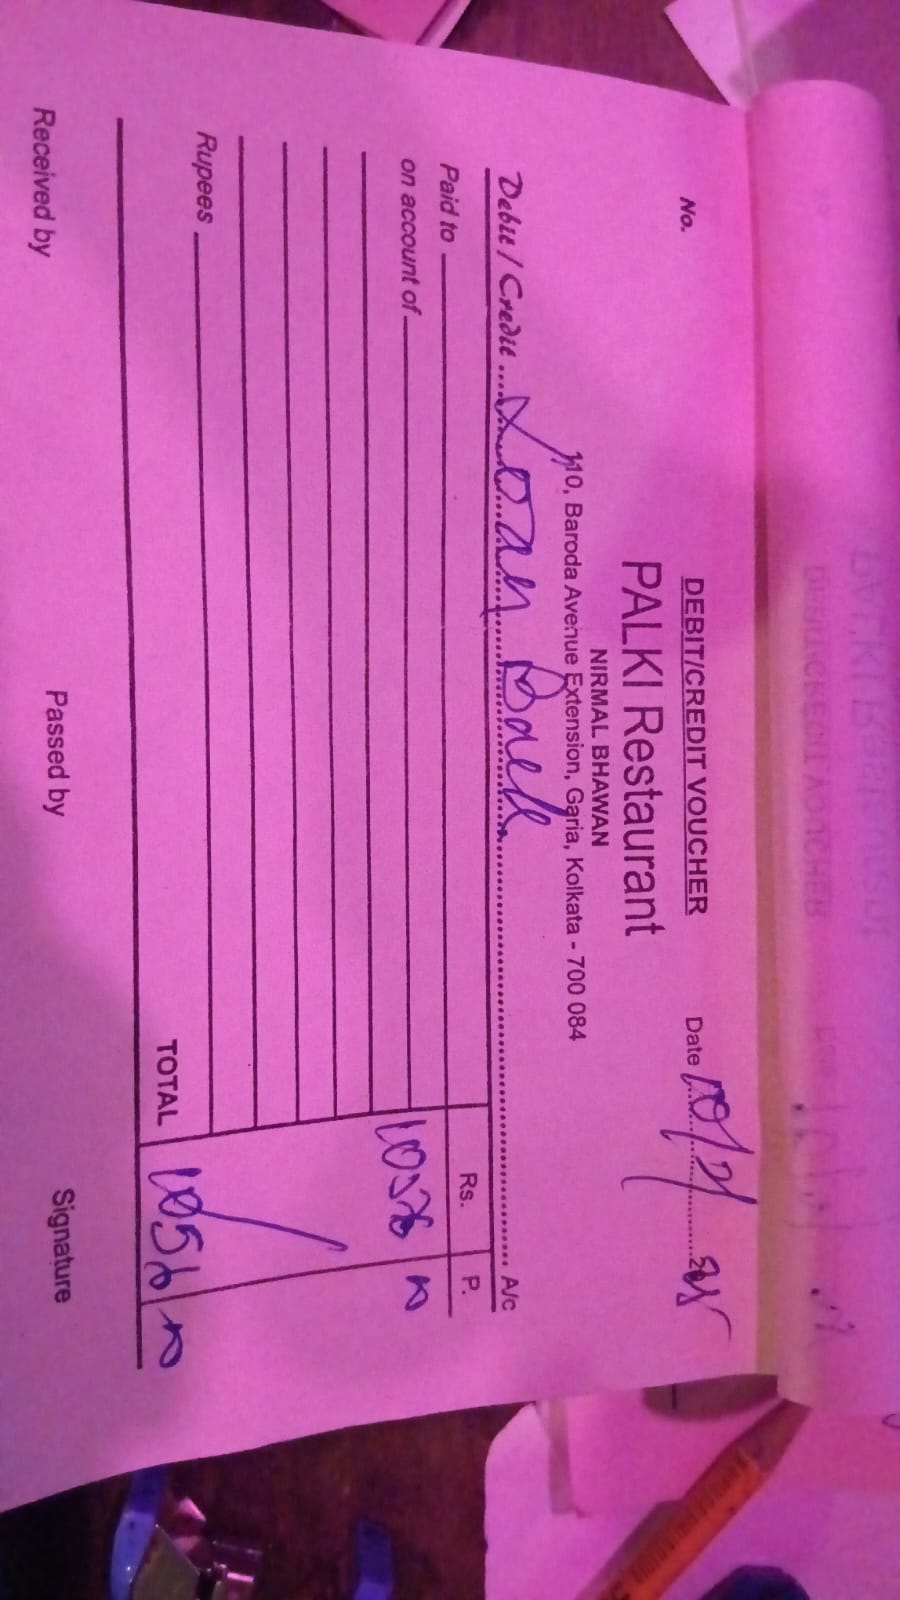 DEBIT/CREDIT VOUCHER
No.
Date 10/2/ 2025
PALKI Restaurant
NIRMAL BHAWAN
110, Baroda Avenue Extension, Garia, Kolkata - 700 084
Debit / Credit Loan A/c
Rs. P.
Paid to
on account of
Rupees
TOTAL
Received by Passed by Signature